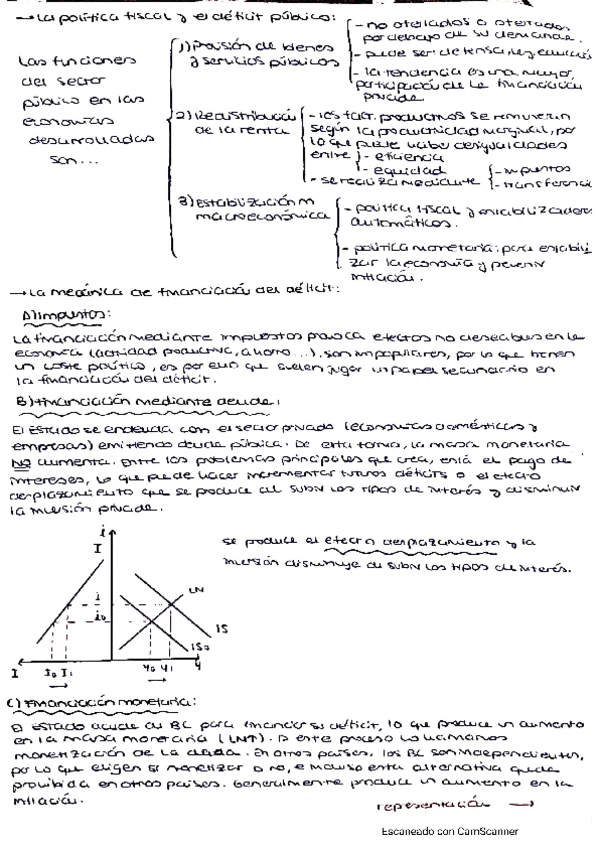 → La política fiscal y el déficit público:
Las funciones
del sector
público en las
economías
desarrolladas
son...
1) Provisión de bienes
y servicios públicos
- no ofertados o ofertados
por debajo de su demanda.
- puede ser defensa, ley, educación
- la tendencia es una mayor
participación de la financiación
privada
2) Redistribución
de la renta
- los fact. productivos se remuneran
según la productividad marginal, por
lo que puede haber desigualdades
entre
- eficiencia
- equidad
- se realiza mediante
- impuestos
- transferencia
3) Establización
macroeconómica
- política fiscal y establilizadores
automáticos.
- política monetaria: para estabili
zar la economía y prevenir
inflación.
→ La mecánica de financiación del déficit:
A) Impuestos:
La financiación mediante impuestos provoca efectos no deseables en la
economía (actividad productiva, ahorro...), son impopulares, por lo que tienen
un coste político, es por eso que suelen jugar un papel secundario en
la financiación del déficit.
B) Financiación mediante deuda:
El Estado se endeuda con el sector privado (economías domésticas y
empresas) emitiendo deuda pública. De esta forma, la masa monetaria
NO aumenta. Entre los problemas principales que crea, está el pago de
intereses, lo que puede hacer incrementar futuros déficits o el efecto
desplazamiento que se produce al subir los tipos de interés y disminuir
la inversión privada.
se produce el efecto desplazamiento y la
inversión disminuye al subir los tipos de interés.
i
I
i
i0
LN
IS
IS0
I
I0 I1
Y0 Y1
Y
C) Financiación monetaria:
El Estado acude al BC para financiar su déficit, lo que produce un aumento
en la masa monetaria (LN↑). A este proceso lo llamamos
monetización de la deuda. En otros países, los BC son independientes,
por lo que eligen si monetizar o no, e incluso esta alternativa queda
prohibida en otros países. Generalmente produce un aumento en la
inflación.
representación →
Escaneado con CamScanner